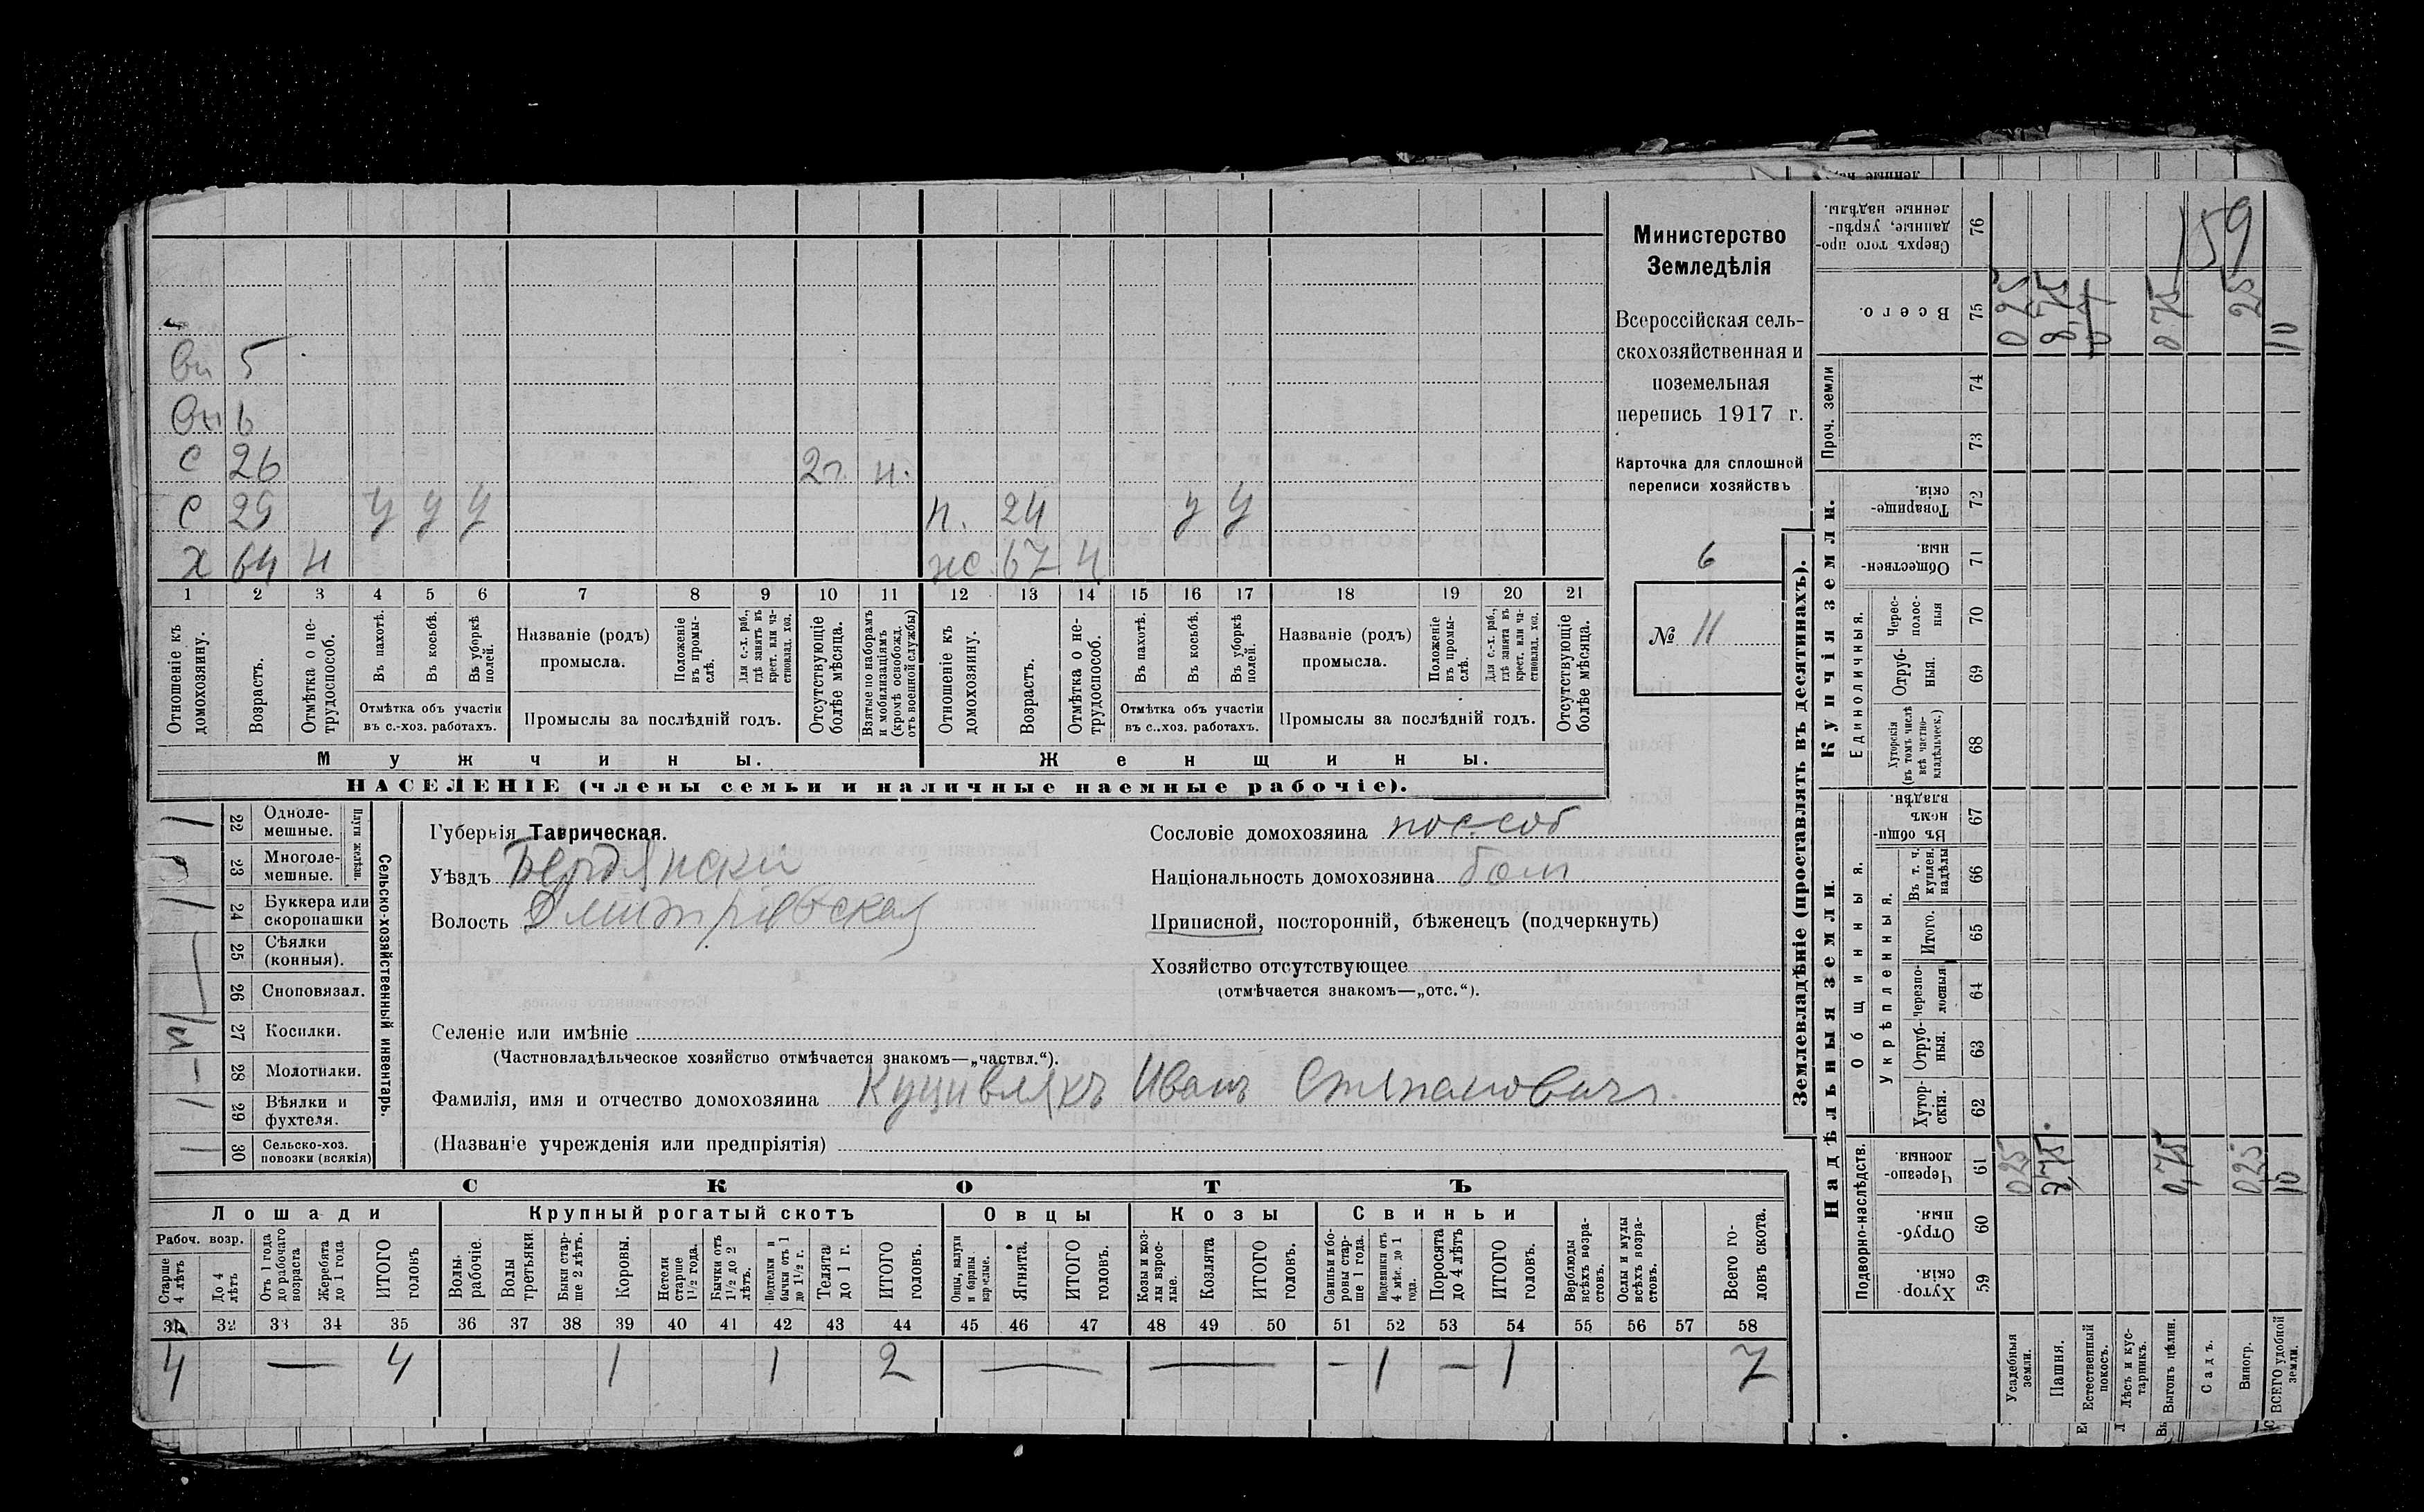 159
вн 5
вн 6
с 26 2г. н.
с 29 у у у п. 24 у у
х 64 н ж. 67 н
1 2 3 4 5 6 7 8 9 10 11 12 13 14 15 16 17 18 19 20 21
Отношеніе къ домохозяину.
Возрастъ.
Отмѣтка о не-трудоспособ.
Въ пахотѣ.
Въ косьбѣ.
Въ уборкѣ полей.
Отмѣтка объ участіи
въ с.-хоз. работахъ.
Названіе (родъ)
промысла.
Положеніе въ промы-слѣ.
Для с.-х. раб., гдѣ занятъ въ крест. или ча-стновлад. хоз.
Промыслы за послѣдній годъ.
Отсутствующіе болѣе мѣсяца.
Взятые по наборамъ и мобилизаціямъ (кромѣ освобожд. отъ военной службы)
Отношеніе къ домохозяину.
Возрастъ.
Отмѣтка о не-трудоспособ.
Въ пахотѣ.
Въ косьбѣ.
Въ уборкѣ полей.
Отмѣтка объ участіи
въ с..хоз. работахъ.
Названіе (родъ)
промысла.
Положеніе въ промы-слѣ.
Для с.-х. раб., гдѣ занята въ крест. или ча-стновлад. хоз.
Промыслы за послѣдній годъ.
Отсутствующіе болѣе мѣсяца.
Мужчины. Женщины.
НАСЕЛЕНІЕ (члены семьи и наличные наемные рабочіе).
Министерство
Земледѣлія
Всероссійская сель-
скохозяйственная и
поземельная
перепись 1917 г.
Карточка для сплошной
переписи хозяйствъ
6
№ 11
Сельско-хозяйственный инвентарь.
Плуги желѣзн.
22 Одноле-мешные. 1
23 Многоле-мешные.
24 Буккера или скоропашки 1
25 Сѣялки (конныя).
26 Сноповязал.
27 Косилки.
28 Молотилки.
29 Вѣялки и фухтеля. 1
30 Сельско-хоз. повозки (всякія)
Губернія Таврическая.
Уѣздъ Бердянски
Волость Дмитріевская
Сословіе домохозяина пос. соб
Національность домохозяина болг.
Приписной, посторонній, бѣженецъ (подчеркнуть)
Хозяйство отсутствующее
(отмѣчается знакомъ—„отс.“).
Селеніе или имѣніе
(Частновладѣльческое хозяйство отмѣчается знакомъ—„частвл.“).
Фамилія, имя и отчество домохозяина Куцивлякъ Иванъ Степановичъ.
(Названіе учрежденія или предпріятія)
СКОТЪ
Лошади Крупный рогатый скотъ Овцы Козы Свиньи
Рабоч. возр.
Старше 4 лѣтъ
До 4 лѣтъ
Отъ 1 года до рабочаго возраста
Жеребята до 1 года
ИТОГО головъ
Волы рабочіе.
Волы третьяки.
Быки стар-ше 2 лѣтъ.
Коровы.
Нетели старше 1½ года.
Бычки отъ 1½ до 2 лѣтъ.
Подтелки и бычки отъ 1 до 1½ г.
Телята до 1 г.
ИТОГО головъ.
Овцы, валухи и бараны взрослые.
Ягнята.
ИТОГО головъ.
Козы и коз-лы взрос-лые.
Козлята
ИТОГО головъ.
Свиньи и бо-ровы стар-ше 1 года.
Подсвинки отъ 4 мѣс. до 1 года.
Поросята до 4 лѣтъ
ИТОГО головъ.
Верблюды всѣхъ возра-стовъ.
Ослы и мулы всѣхъ возра-стовъ.
Всего го-ловъ скота.
31 32 33 34 35 36 37 38 39 40 41 42 43 44 45 46 47 48 49 50 51 52 53 54 55 56 57 58
4 — 4 1 1 2 — — - 1 - 1 7
Землевладѣніе (проставлять въ десятинахъ).
Надѣльныя земли. Купчія земли. Проч. земли
Подворно-наслѣдств. Общинныя. Укрѣпленныя. Единоличныя.
Хутор-скія. 59
Отруб-ныя. 60
Черезпо-лосныя. 61
Хутор-скія. 62
Отруб-ныя. 63
Черезпо-лосныя 64
Итого. 65
Въ т. ч. куплен. надѣлы 66
Въ общин-номъ владѣн. 67
Хуторскія (въ томъ числѣ всѣ частно-владѣльческ.) 68
Отруб-ныя. 69
Черес-полос-ныя 70
Обществен-ныя. 71
Товарище-скія. 72
73
74
Всего. 75
Сверхъ того про-данные, укрѣп-ленные надѣлы. 76
Усадебныя земли. 0,25 0,25
Пашня. 8,75 8,75
Естественный покосъ.
Лѣсъ и кус-тарникъ.
Выгонъ цѣлин. 0,75 0,75
Садъ.
Виногр. 0,25 25
ВСЕГО удобной земли. 10 10